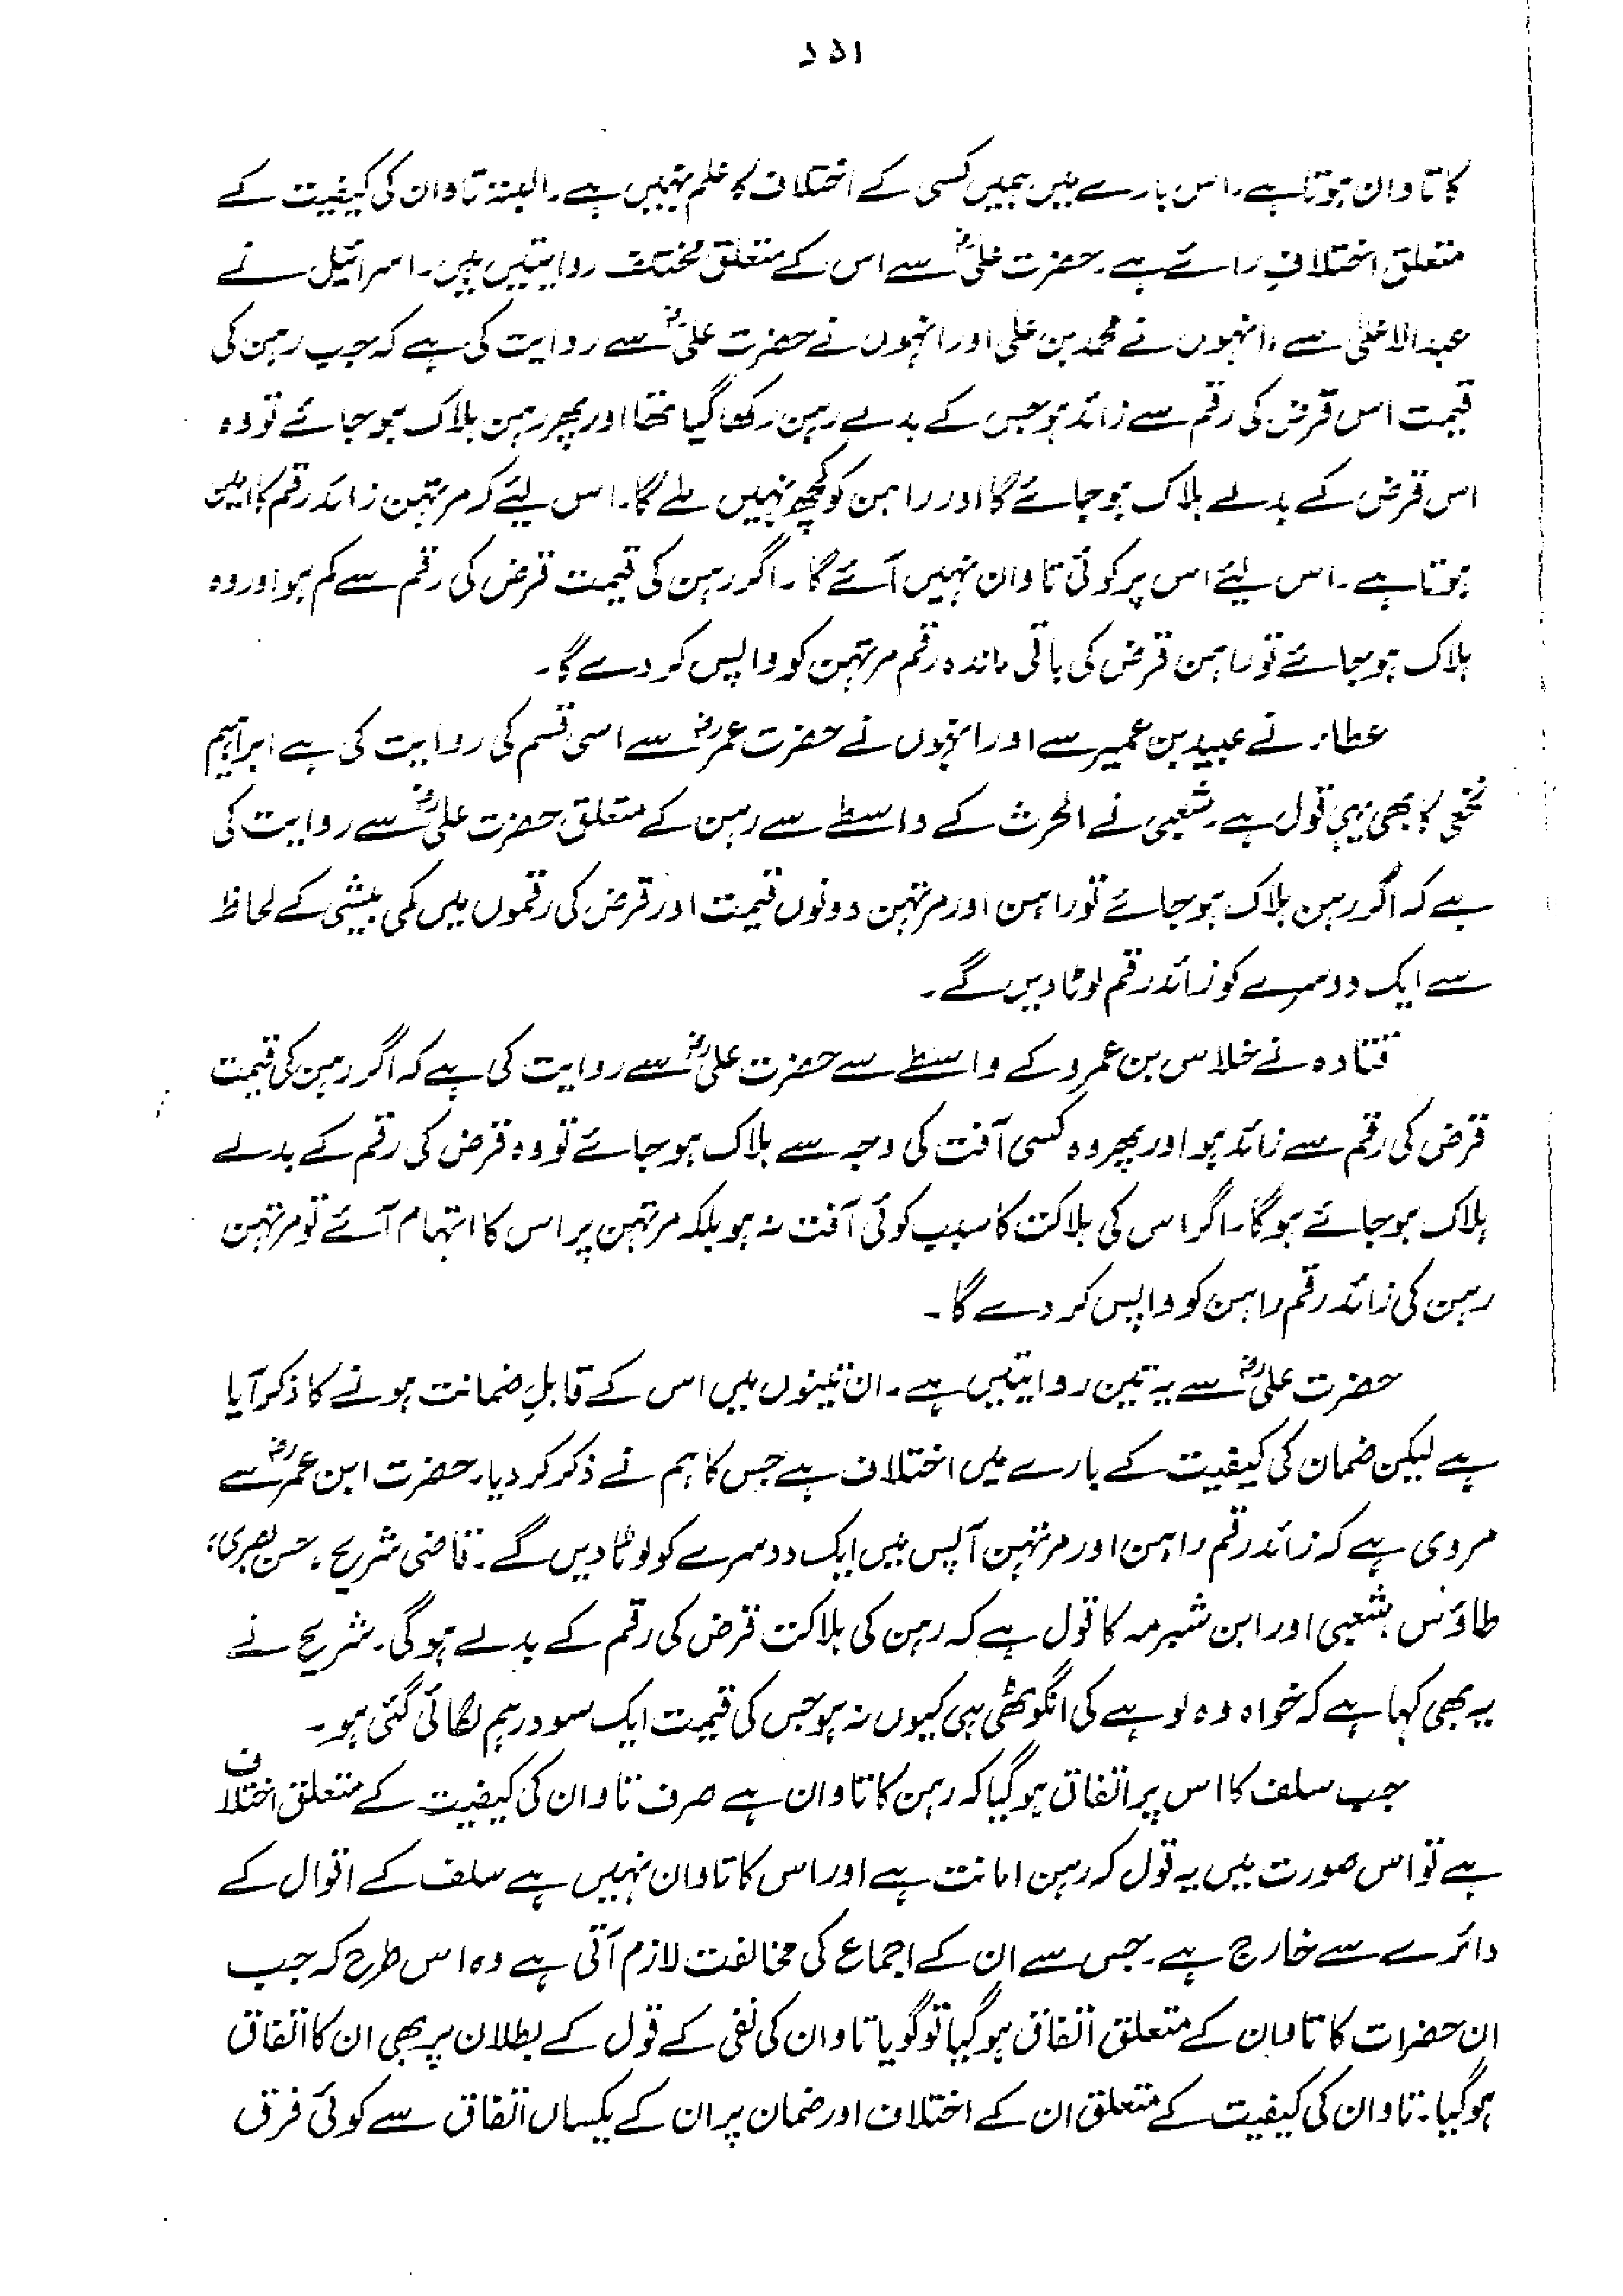 ۱۵۵
کا تاوان ہوتا ہے۔ اس بارے میں ہمیں کسی کے اختلاف کا علم نہیں ہے۔ البتہ تاوان کی کیفیت کے
متعلق اختلافِ رائے ہے۔ حضرت علیؓ سے اس کے متعلق مختلف روایتیں ہیں۔ اسرائیل نے
عبدالاعلیٰ سے، انہوں نے محمد بن علی اور انہوں نے حضرت علیؓ سے روایت کی ہے کہ جب رہن کی
قیمت اس قرض کی رقم سے زائد ہو جس کے بدلے رہن رکھا گیا تھا اور پھر رہن ہلاک ہو جائے تو وہ
اس قرض کے بدلے ہلاک ہو جائے گا اور راہن کو کچھ نہیں ملے گا۔ اس لیئے کہ مرتہن زائد رقم کا امین
ہوتا ہے۔ اس لیئے اس پر کوئی تاوان نہیں آئے گا۔ اگر رہن کی قیمت قرض کی رقم سے کم ہو اور وہ
ہلاک ہو جائے تو راہن قرض کی باقی ماندہ رقم مرتہن کو واپس کر دے گا۔
عطاء نے عبید بن عمیر سے اور انہوں نے حضرت عمرؓ سے اسی قسم کی روایت کی ہے ابراہیم
نخعی کا بھی یہی قول ہے۔ شعبی نے الحرث کے واسطے سے رہن کے متعلق حضرت علیؓ سے روایت کی
ہے کہ اگر رہن ہلاک ہو جائے تو راہن اور مرتہن دونوں قیمت اور قرض کی رقموں میں کمی بیشی کے لحاظ
سے ایک دوسرے کو زائد رقم لوٹا دیں گے۔
قتادہ نے خلاس بن عمرو کے واسطے سے حضرت علیؓ سے روایت کی ہے کہ اگر رہن کی قیمت
قرض کی رقم سے زائد ہو اور پھر وہ کسی آفت کی وجہ سے ہلاک ہو جائے تو وہ قرض کی رقم کے بدلے
ہلاک ہو جائے ہوگا۔ اگر اس کی ہلاکت کا سبب کوئی آفت نہ ہو بلکہ مرتہن پر اس کا اتہام آئے تو مرتہن
رہن کی زائد رقم راہن کو واپس کر دے گا۔
حضرت علیؓ سے یہ تین روایتیں ہے۔ ان تینوں میں اس کے قابلِ ضمانت ہونے کا ذکر آیا
ہے لیکن ضمان کی کیفیت کے بارے میں اختلاف ہے جس کا ہم نے ذکر کر دیا۔ حضرت ابن عمرؓ سے
مروی ہے کہ زائد رقم راہن اور مرتہن آپس میں ایک دوسرے کو لوٹا دیں گے۔ قاضی شریح، حسن بصری،
طاؤس، شعبی اور ابن شبرمہ کا قول ہے کہ رہن کی ہلاکت قرض کی رقم کے بدلے ہوگی۔ شریح نے
یہ بھی کہا ہے کہ خواہ وہ لوہے کی انگوٹھی ہی کیوں نہ ہو جس کی قیمت ایک سو درہم لگائی گئی ہو۔
جب سلف کا اس پر اتفاق ہو گیا کہ رہن کا تاوان ہے صرف تاوان کی کیفیت کے متعلق اختلاف
ہے تو اس صورت میں یہ قول کہ رہن امانت ہے اور اس کا تاوان نہیں ہے سلف کے اقوال کے
دائرے سے خارج ہے۔ جس سے ان کے اجماع کی مخالفت لازم آتی ہے وہ اس طرح کہ جب
ان حضرات کا تاوان کے متعلق اتفاق ہو گیا تو گویا تاوان کی نفی کے قول کے بطلان پر بھی ان کا اتفاق
ہو گیا۔ تاوان کی کیفیت کے متعلق ان کے اختلاف اور ضمان پر ان کے یکساں اتفاق سے کوئی فرق